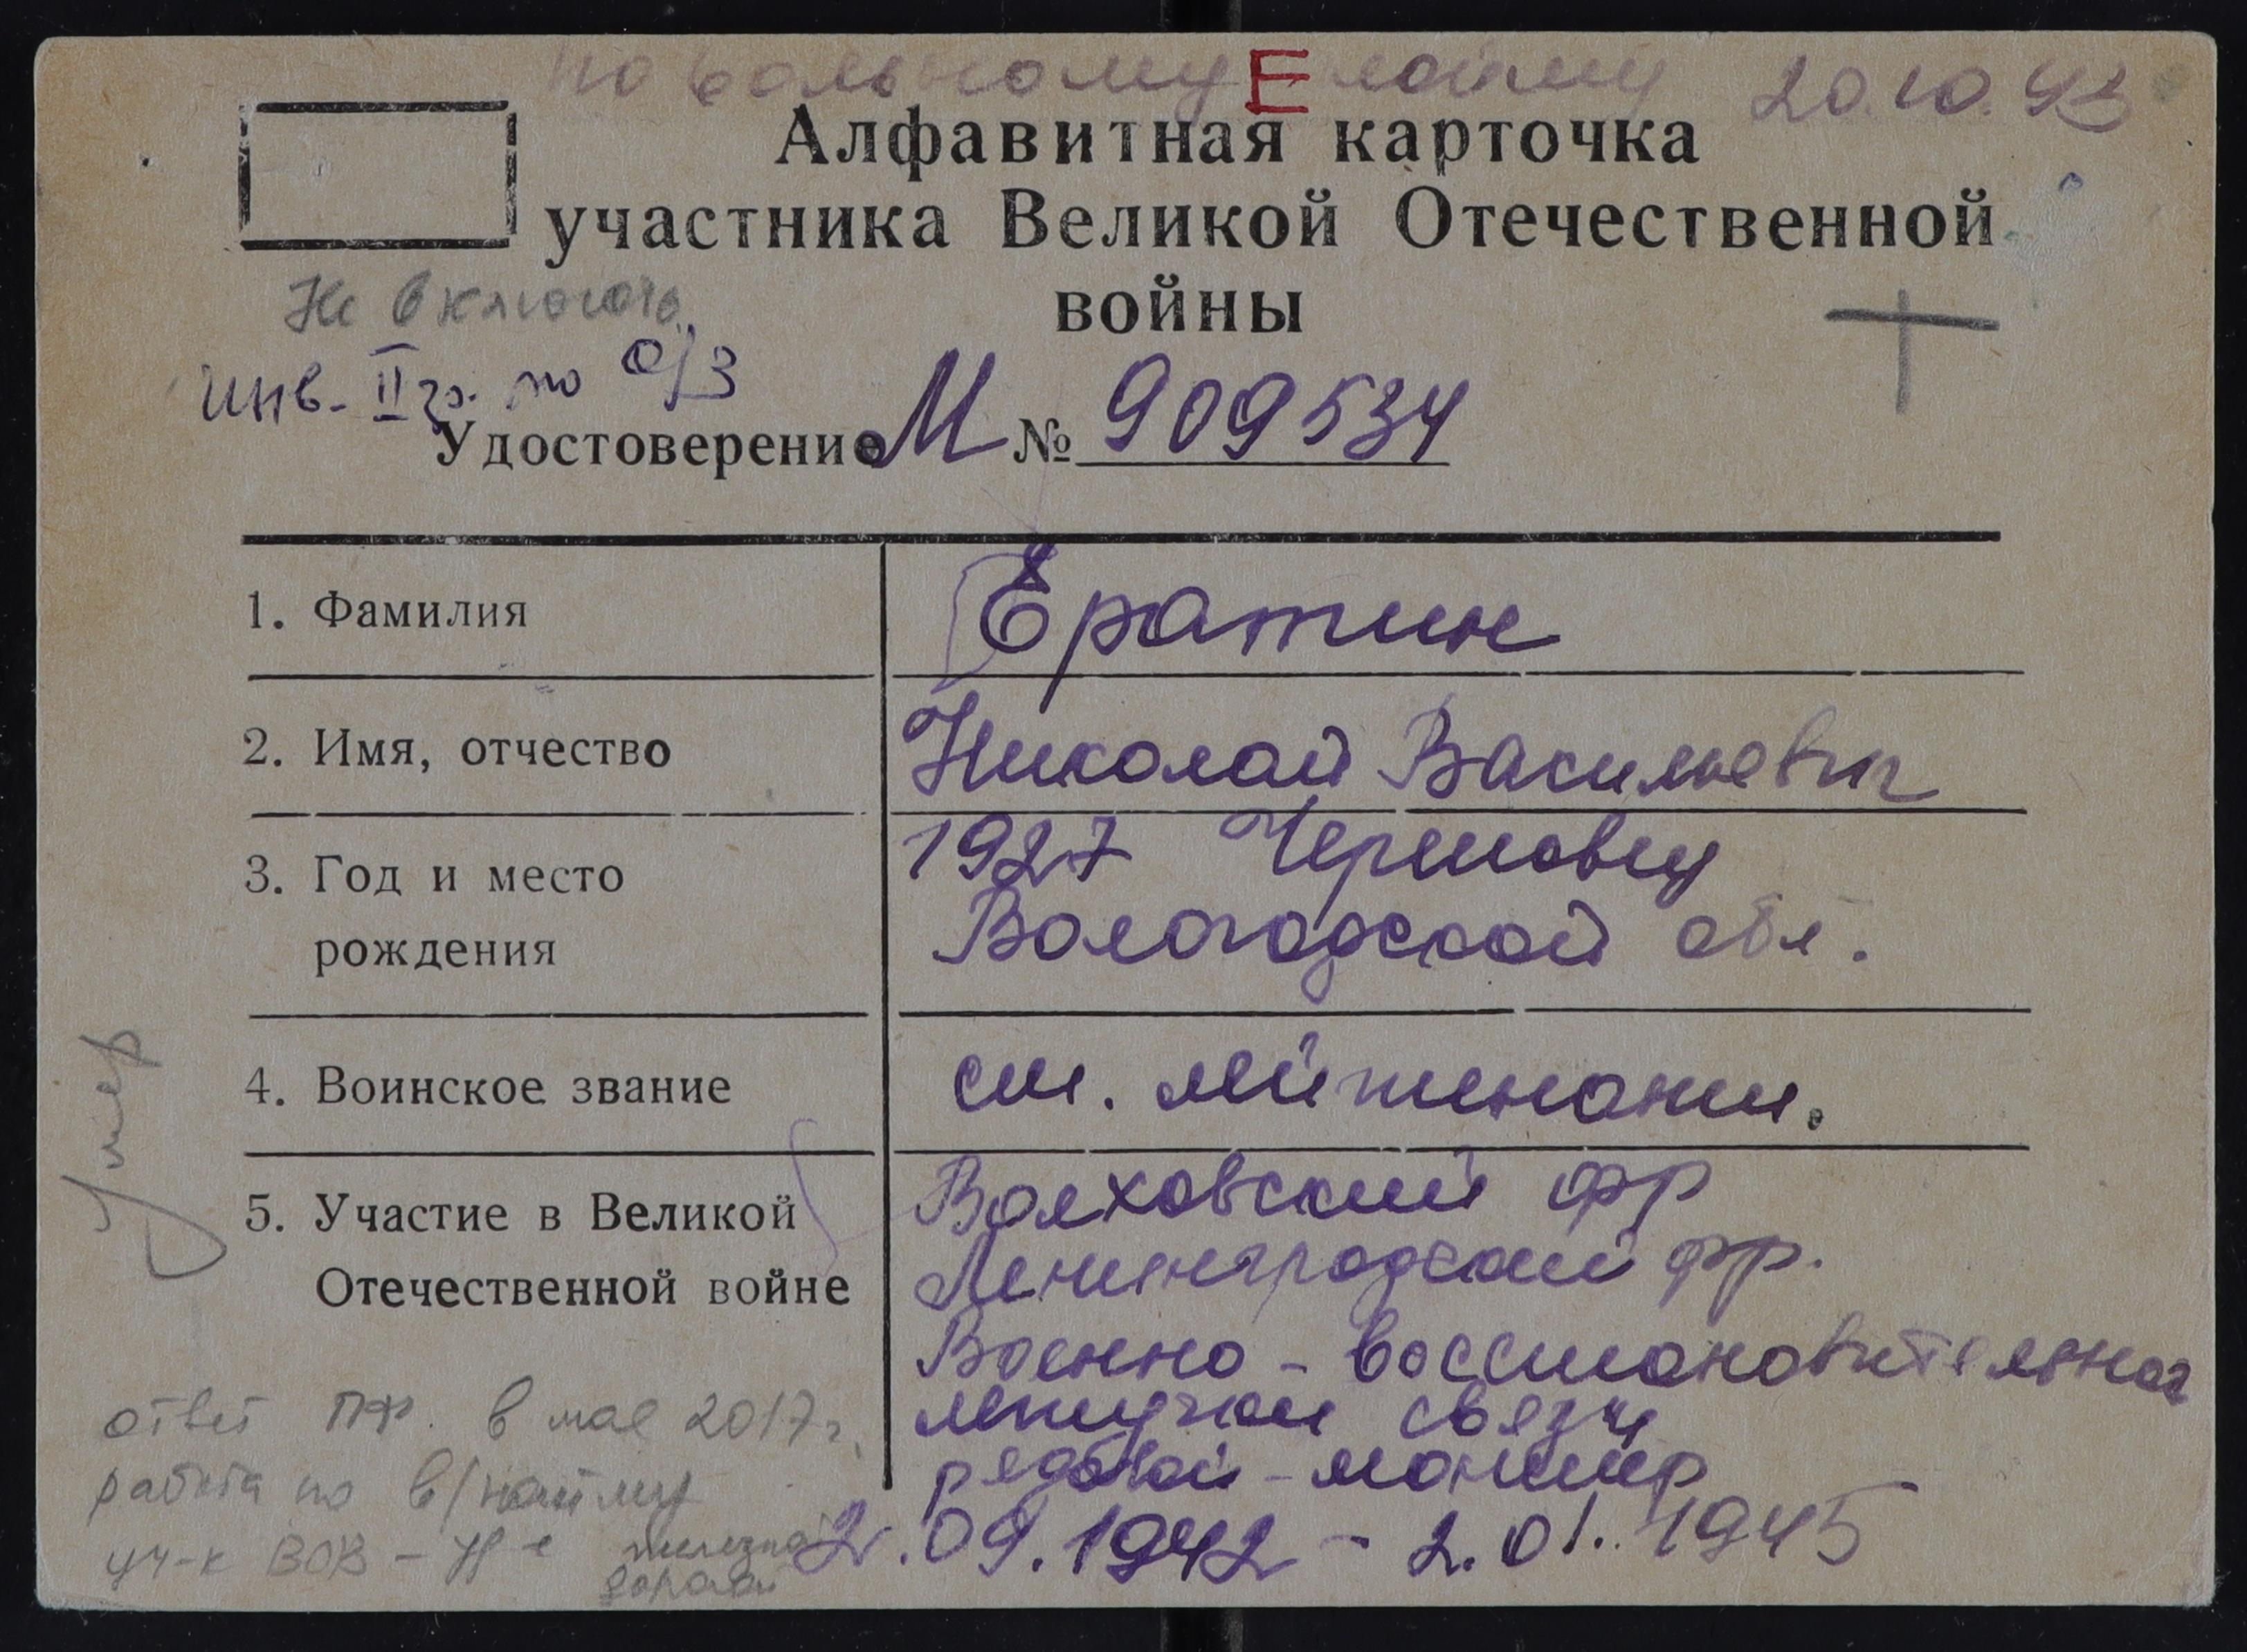 по вольному найму 20.10.43
Е
Алфавитная карточка
участника Великой Отечественной
войны
Не включать
инв. II гр. по о/з
Удостоверение М № 909534
1. Фамилия
Ёратин
2. Имя, отчество
Николай Васильевич
3. Год и место
рождения
1927 Череповец
Вологодской обл.
4. Воинское звание
ст. лейтенант.
5. Участие в Великой
Отечественной войне
Волховский фр
Ленинградский фр.
Военно-восстановительная
летучка связи
рядовой-монтёр
2.09.1942 - 2.01.1945
Умер
ответ ПФ. в мае 2017 г.
работа по в/найму
уч-к ВОВ -
железная
дорога